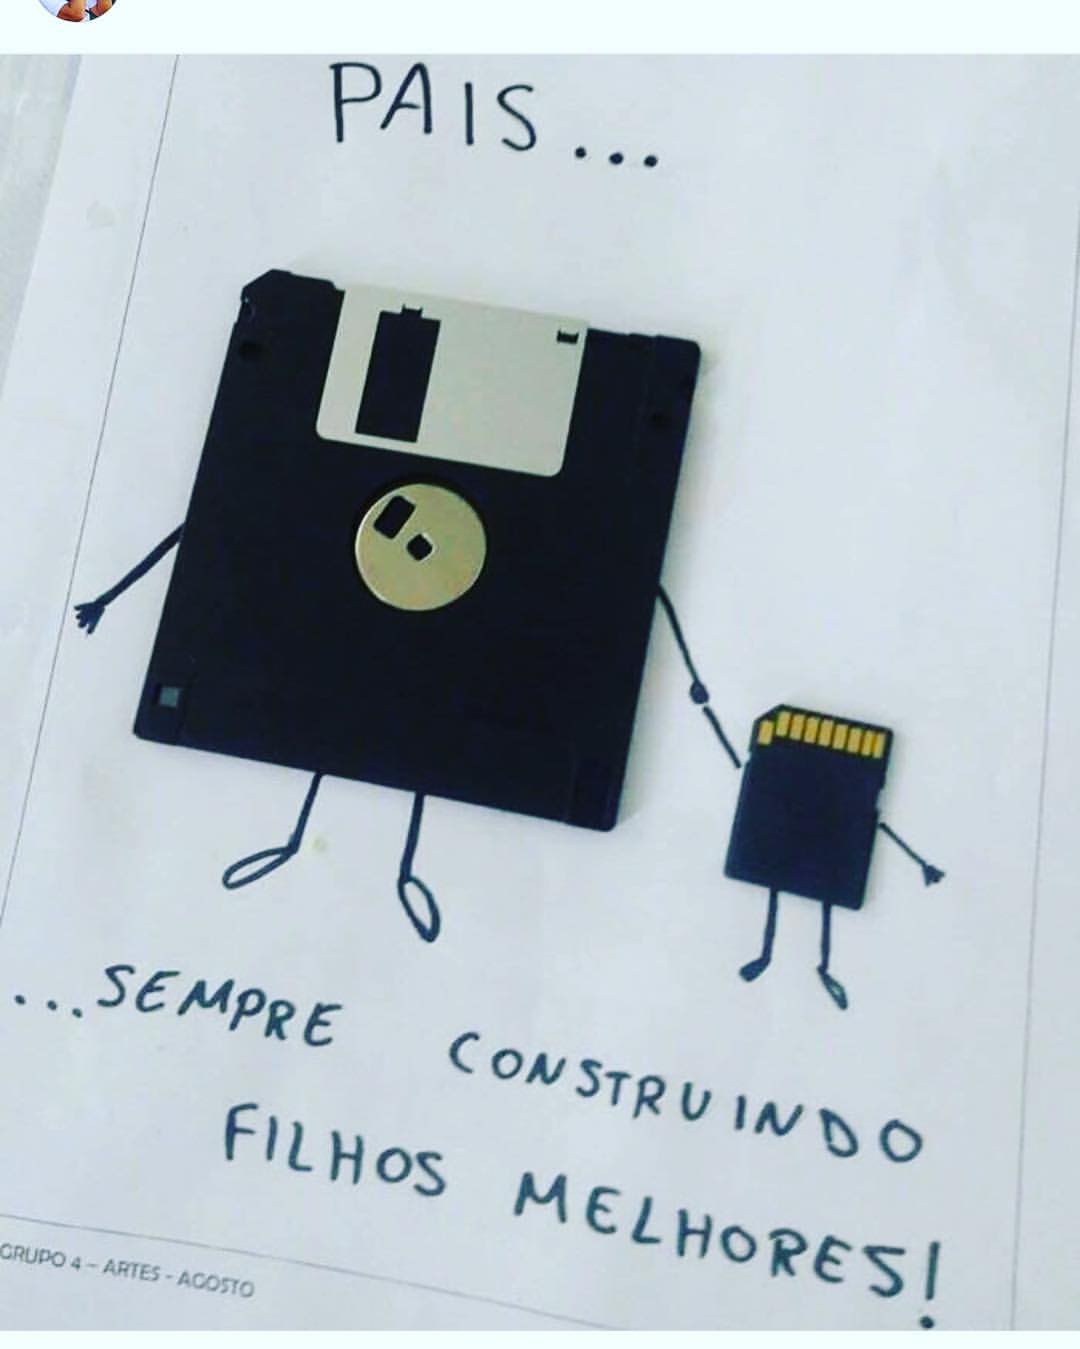 PAIS...
...SEMPRE CONSTRUINDO
FILHOS MELHORES!
GRUPO 4 - ARTES - AGOSTO